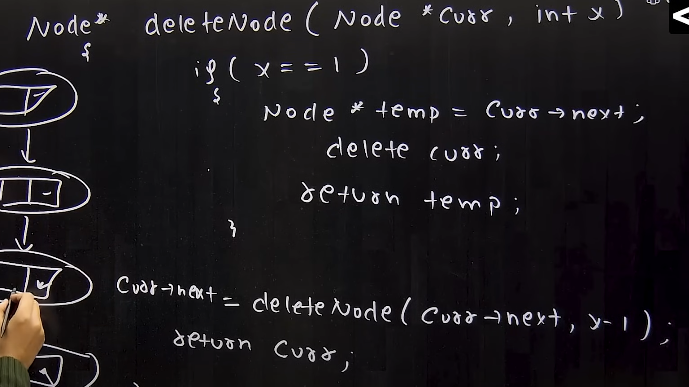 Node* deleteNode ( Node *curr , int x )
{
if ( x == 1 )
{
Node * temp = curr → next ;
delete curr ;
return temp ;
}
curr → next = deleteNode ( curr → next , x-1 ) ;
return curr ;
}